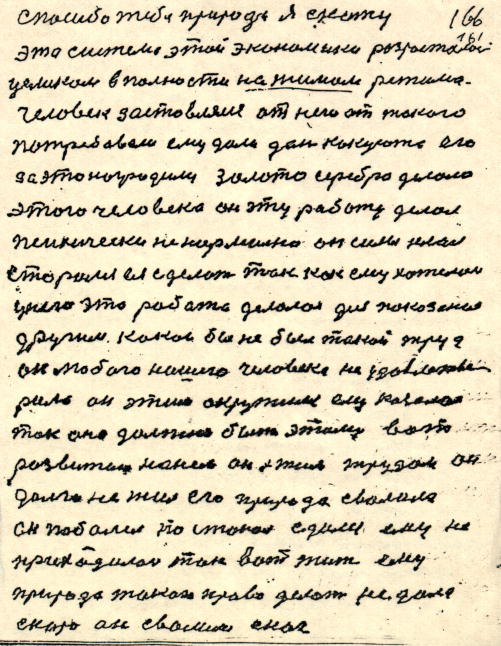 Спосибо тебя природа я скожу 166
эта система этой экономики розростолася 161
целиком вполности нажимом режима.
Человек заставляле от него от такого
потребавали ему дали дан какуюто его
за это ногродили золото серебро делало
этого человека он эту работу делал
психически не нармально он силы клал
старался сделать так как ему хотелося
у него это работа делалася для показания
другим. какой бы не был такой труд
он любого нашего человека не удовлетво
рило он этим окружил ему казалося
так оно должно быть этому вот
развитая он жил трудом он
долго не жил его природа свалила
Он побался но стакая сдали ему не
приходилося так вот жит ему
природа такого право делать не дала
скоро он свалил